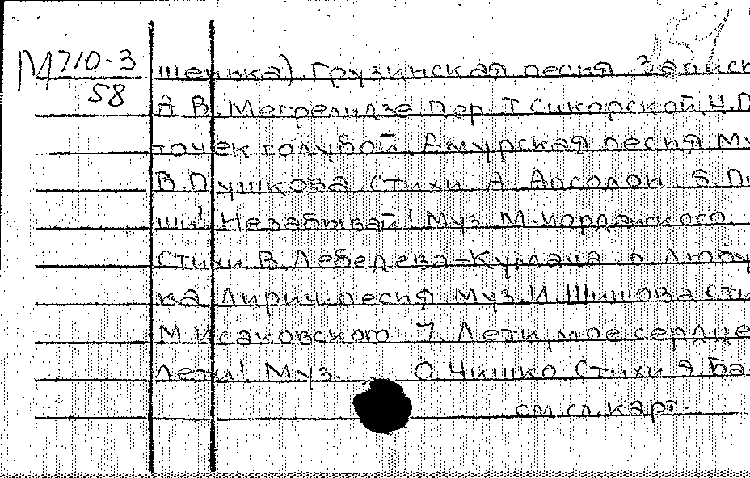 М210-3
58
шенька). Грузинская песня. Запись
А.В. Мегрелидзе Пер. Т Сикорской. 4.
точек голубой. Амурская песня. Му
В.Пушкова. Стихи А. 5.
ши! Незабывай! Муз. М. Иорданского.
Стихи В. Лебедева-Кумача. 6. Любу
ка. Лирич. песня. Муз. И. Шишова. Сти
М. Исаковского. 7. Лети, мое сердце
Лети! Муз. О. Чишко. Стихи Я. Ба
см. сл. карт.